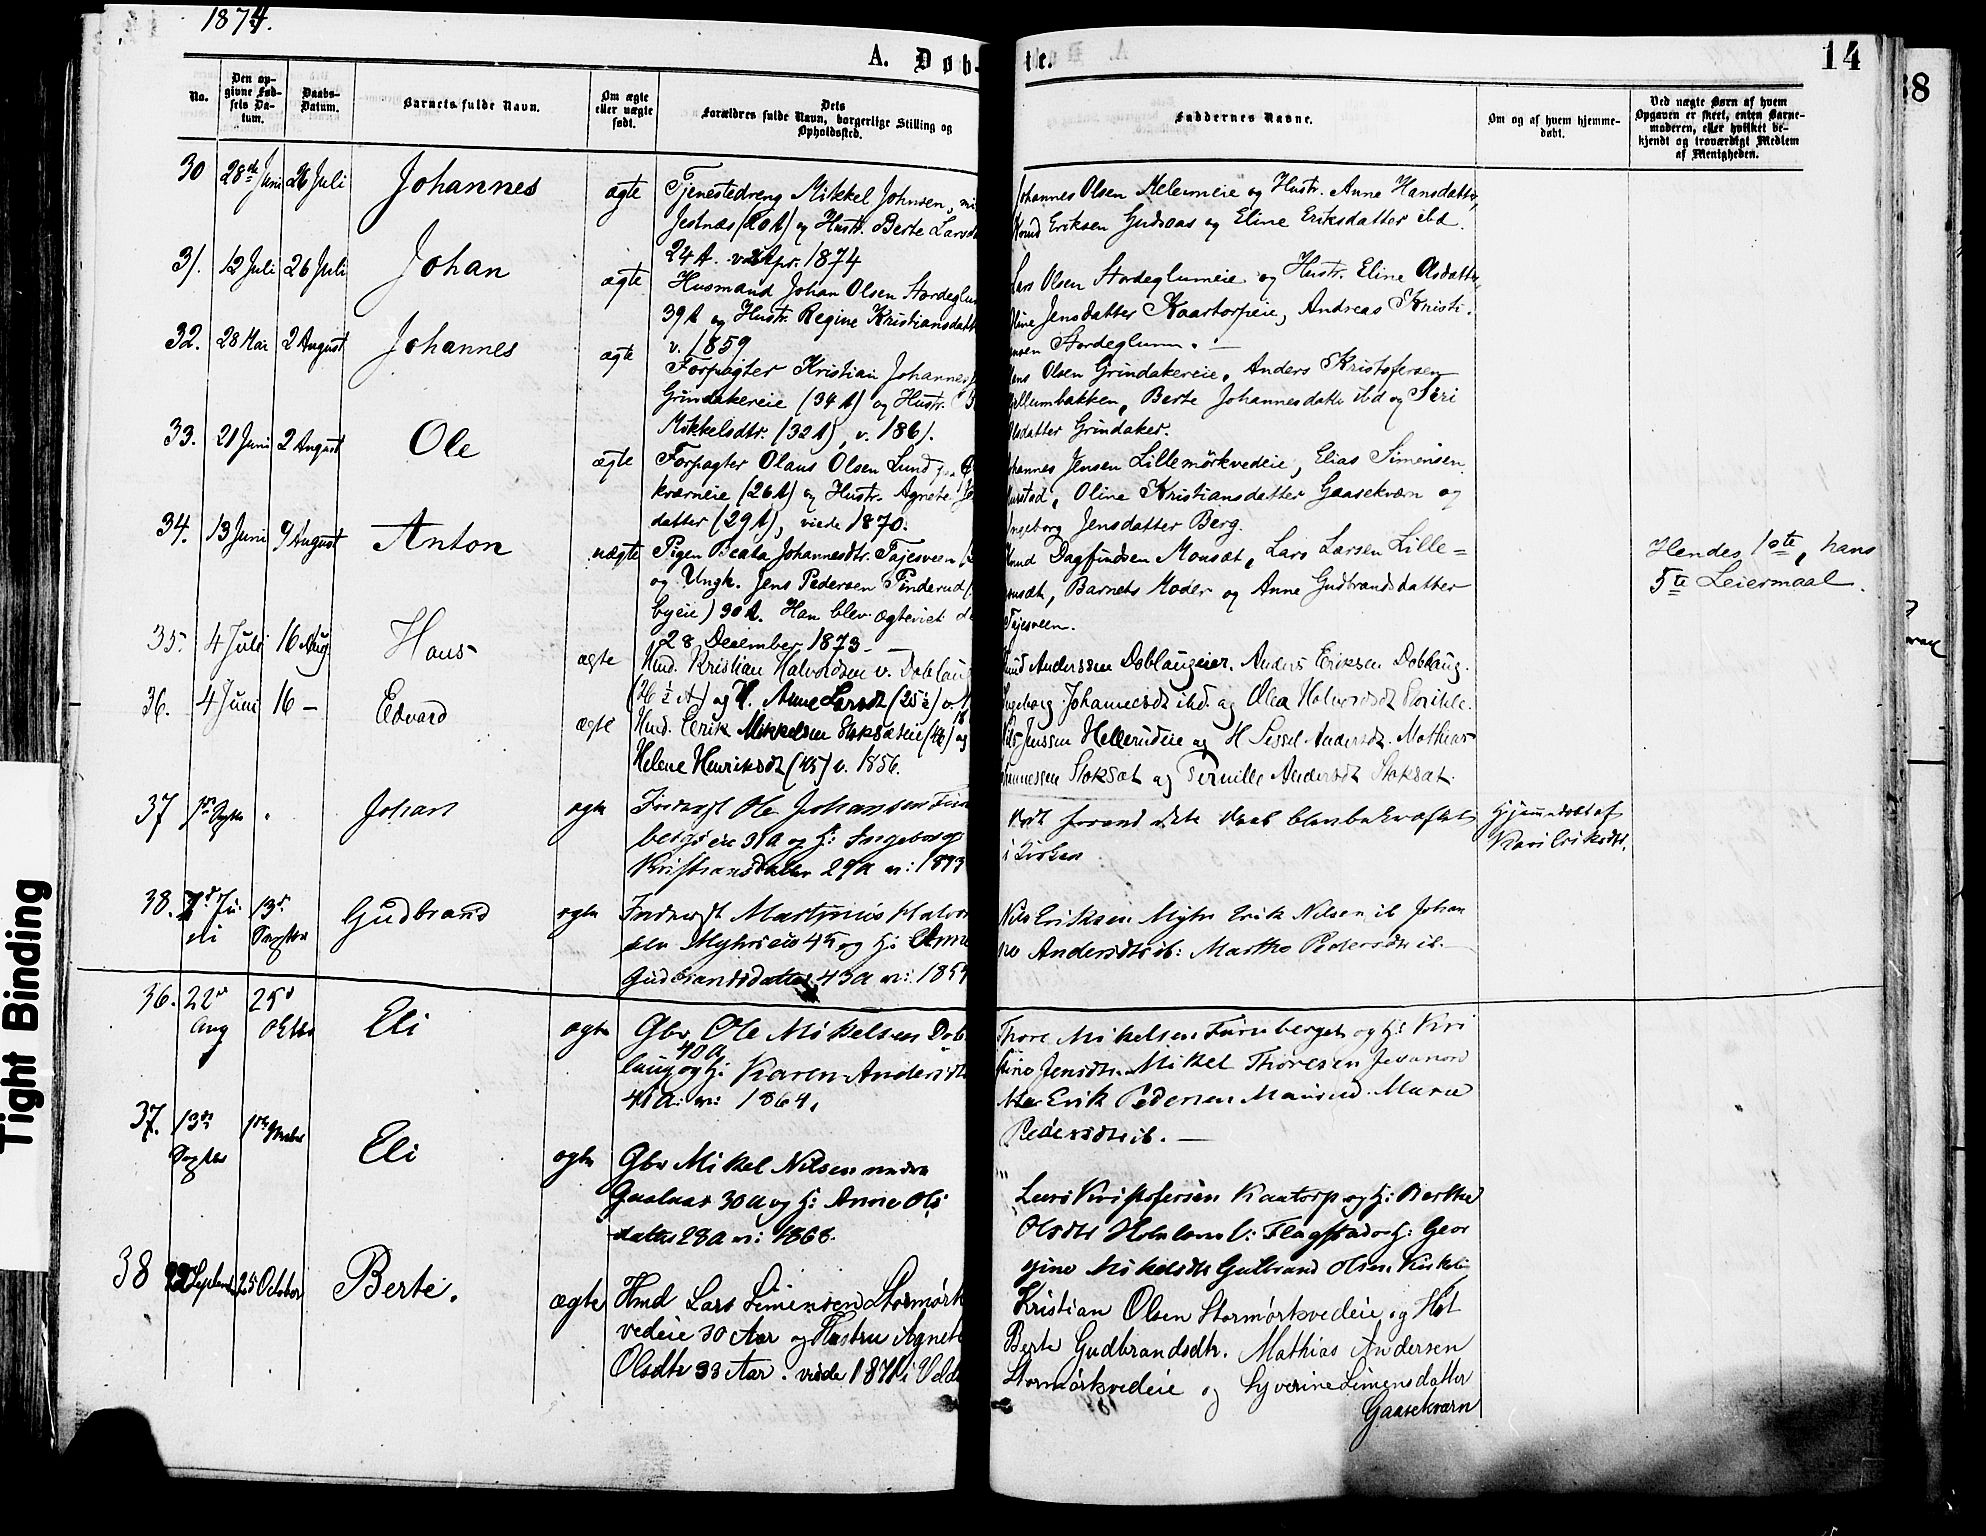 1874.
A. Døb-
te.
14
38
No.
Den op-
givne Fød-
sels Da-
tum.
Daabs-
Datum.
Barnets fulde Navn.
Om ægte
eller uægte
født.
Dets
Forældres fulde Navn, borgerlige Stilling og
Opholdssted.
Faddernes Navne.
Om og af hvem hjemme-
døbt.
Ved uægte Børn af hvem
Opgaven er skeet, enten Barne-
moderen, eller hvilket be-
kjendt og troværdigt Medlem
af Menigheden.
30 28de Juni 26 Juli Johannes ægte Tjenestedreng Mikkel Johnsen,
Jestnæs (20 A) og Hustr. Berte Larsd
24 A. v. Apr. 1874
Johannes Olsen Melumeie og Hustr. Anne Hansdatter,
Knud Eriksen Gudsaas og Eline Eriksdatter ibd.
31. 12 Juli 26 Juli Johan ægte Husmand Johan Olsen Stordeglum
39 A og Hustr. Regine Kristiansdatt
v. 1859
Lars Olsen Stordeglumeie og Hustr. Eline Olsdatter,
Oline Jensdatter Kaartorpeie, Andreas Kristi-
ansen Stordeglum. —
32. 28 Mai 2 August Johannes ægte Forpagter Kristian Johannes
Grindakereie (34 A) og Hustr.
Mikkelsdtr. (32 A), v. 1861.
Hans Olsen Grindakereie, Anders Kristofersen
Berte Johannesdatter ibd og Siri
Olsdatter Grindaker.
33. 21 Juni 2 August Ole ægte Forpagter Olaus Olsen Lund
kværneie (26 A) og Hustr. Agnete
datter (29 A), viede 1870.
Johannes Jensen Lillemörkvedeie, Elias Simensen
Oline Kristiansdatter Gaasekværn og
Ingeborg Jensdatter Berg.
34. 13 Juni 9 August Anton uægte Pigen Beata Johannesdtr. Tajesveen
og Ungk. Jens Pedersen Finderud
byeie) 30 A. Han blev ægteviet d
28 December 1873. —
Knud Dagfindsen Monsæt, Lars Larsen Lille=
monsæt, Barnets Moder og Anne Gudbrandsdatter
Tajesveen.
Hendes 1ste, hans
5te Leiermaal.
35. 4 Juli 16 Aug Hans ægte Hmd. Kristian Halvordsen v. Doblaug
(26 ½ A) og H. Anne Larsdt (25 ½) v.
Knud Anderssen Doblaugeier. Anders Eriksen Doblaug.
Ingeborg Johannesdt ibd. og Olea Halvorsdt
36. 4 Juni 16 — Edvard ægte Hmd. Erik Mikkelsen Stoksæteie (44) og
Helene Henriksdt (45) v. 1856.
Nils Jenssen Hellerudeie og H Sissel Andersdt. Mathias
Stoksæt og Pernille Andersdt Stoksæt.
37 1ste Septbr " Johan ægte Indergst Ole Johansen Furu
bergseie 31 a og H: Ingeborg
Kristiansdatter 29 a v: 1873
Hjemmedøbt af
Kari Eriksdtr.
38. 7d Ju-
ni 13de
Septbr Gudbrand ægte Martinius Halvor
sen Myhrseie 45 og H: Anne
Gudbrandsdatter 43 a v: 1854
Nils Eriksen Myhr Erik Nilsen ib Johan
ne Andersdtr ib: Marthe Pedersdtr ib.
36. 22de
Aug 25de
Oktbr Eli ægte Gbr Ole Mikelsen Dob
laug 40 a og H: Karen Andersdtr
41 a: v: 1864.
Thore Mikelsen Furuberget og H: Kri
stine Jensdtr. Mikel Thoresen
Erik Pedersen Maurud. Maria
Pedersdtr ib. —
37. 13de
Septbr 1ste Eli ægte Gbr Mikel Nilsen nedre
30 a og H: Anne Ols
datter 28 a v: 1868.
Lars Kristofersen Kaatorp og H: Berthe
Olsdtr Flagstad og H: Geor
gine Mikelsdtr Gulbrand Olsen
38 22 Septemb 25 October Berte. ægte Hmd Lars Simensen Stormörk
vedeie 30 Aar og Hustru Agnete
Olsdtr 33 Aar. viede 1871 i Velde
Kristian Olsen Stormörkvedeie og Hst
Berte Gudbrandsdtr. Mathias Andersen
Stormörkvedeie og Syverine Simensdatter
Gaasekværn
Tight Binding